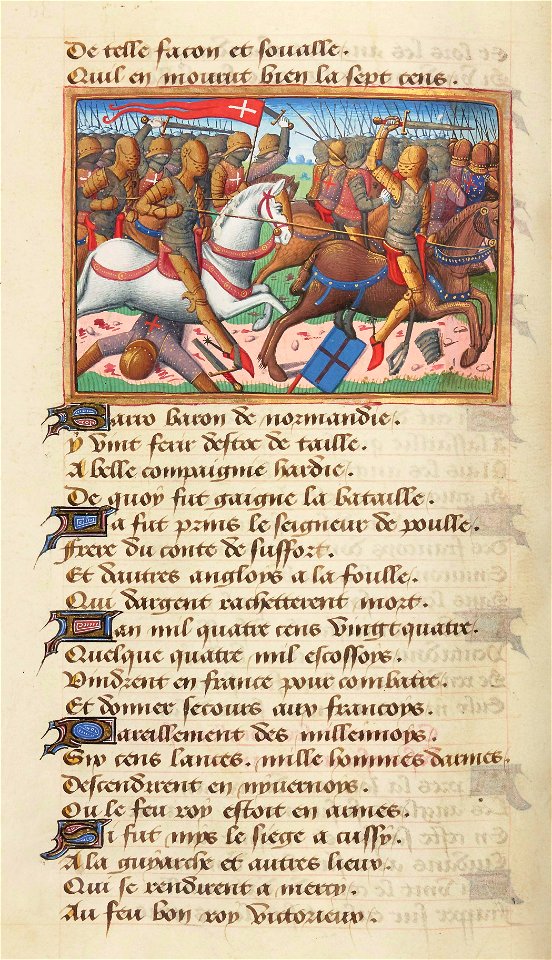 De telle facon et soualle.
Quil en mourut bien la sept cens.
Sarro baron de normandie.
y vint ferir destoc de taille.
A belle compaignie hardie.
De quoy fut gaigne la bataille.
La fut prins le seigneur de poulle.
Frere du conte de suffort.
Et dautres angloys a la foulle.
Qui dargent rachetterent mort.
Lan mil quatre cens vingt quatre.
Quelque quatre mil escossoys.
Vindrent en france pour combatre.
Et donner secours aux francoys.
Pareillement des millennoys.
Six cens lances. mille hommes darmes.
Descendirent en nyuernoys.
Ou le feu roy estoit en armes.
Si fut mys le siege a cussy.
A la guyarche et autres lieux.
Qui se rendirent a mercy.
Au feu bon roy victorieux.